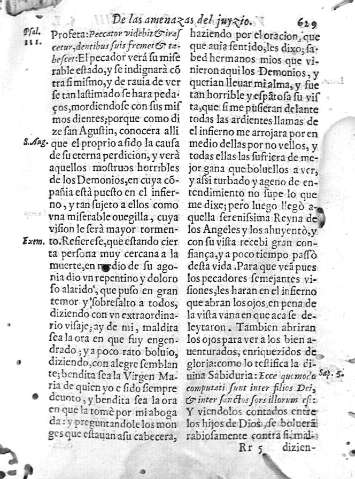 De las amenazas del juyzio. 629
Psal. 111.
Profeta: Peccator videbit & iras
cetur, dentibus suis fremet & ta-
bescet: El pecador verá su mise
rable estado, y se indignará cõ
tra si mismo, y de rauia de ver
se tan lastimado se hara peda-
ços, mordiendose con sus mis
mos dientes; porque como di
S. Aug.
ze san Agustin, conocera alli
que el proprio a sido la causa
de su eterna perdicion, y verà
aquellos mostruos horribles
de los Demonios, en cuya cõ-
pañia està puesto en el infier-
no, y tan sujeto a ellos como
vna miserable ouegilla, cuya
vision le serà mayor tormen-
Exem.
to. Refierese, que estando cier
ta persona muy cercana a la
muerte, en medio de su ago-
nia dio vn repentino y doloro
so alarido, que puso en gran
temor y sobresalto a todos,
diziendo con vn extraordina-
rio visaje; ay de mi, maldita
sea la ora en que fuy engen-
drado; y a poco rato boluio,
diziendo, con alegre semblan
te; bendita sea la Virgen Ma-
ria de quien yo e sido siempre
deuoto, y bendita sea la ora
en que la tomè por mi aboga
da: y preguntandole los mon
ges que estauan a su cabecera,
haziendo por el oracion, que
que auia sentido, les dixo; sa-
bed hermanos mios que vi-
nieron aqui los Demonios, y
querian lleuar mi alma, y fue
tan horrible y espãtosa su vis
ta, que si me pusieran delante
todas las ardientes llamas de
el infierno me arrojara por en
medio dellas por no vellos, y
todas ellas las sufriera de me-
jor gana que boluellos a ver;
y assi turbado y ageno de en-
tendimiento no supe lo que
me dixe; pero luego llegò a-
quella serenissima Reyna de
los Angeles y los ahuyentò, y
con su vista recebi gran con-
fiança, y a poco tiempo passò
desta vida. Para que vea pues
los pecadores semejantes vi-
siones, les haran en el infierno
que abran los ojos, en pena de
la vista vana en que aca se de-
leytaron. Tambien abriran
los ojos para ver a los bien a-
uenturados, enriquezidos de
gloria: como lo testifica la di-
Sap. 5.
uina Sabiduria: Ecce quomodo
computati sunt inter filios Dei,
& inter sanctos sors illorum est:
Y viendolos contados entre
los hijos de Dios, se boluerà
rabiosamente contra si mal-
Rr 5 dizien-